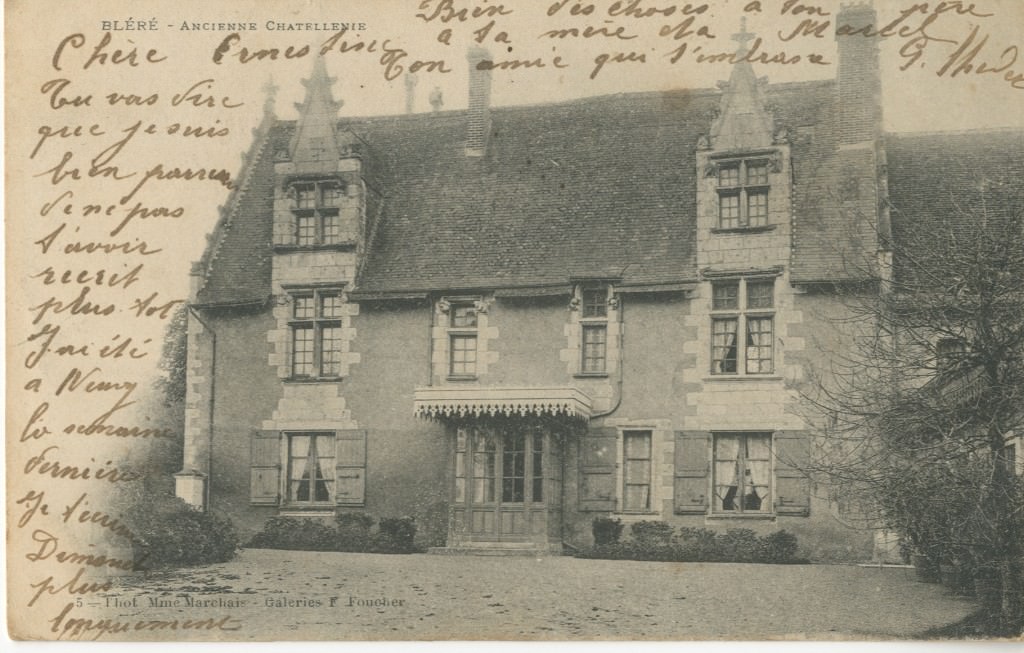 BLÉRÉ - ANCIENNE CHATELLENIE
Bien des choses a ton père
a ta mère et a Marcel
Ton amie qui t'embrasse
G.
Chère Ernestine
Tu vas dire
que je suis
bien
de ne pas
t'avoir
recrit
plus tot
J'ai été
a
la semaine
dernière
Je
plus
longuement
5 - Phot Mme Marchais - Galeries F Foucher